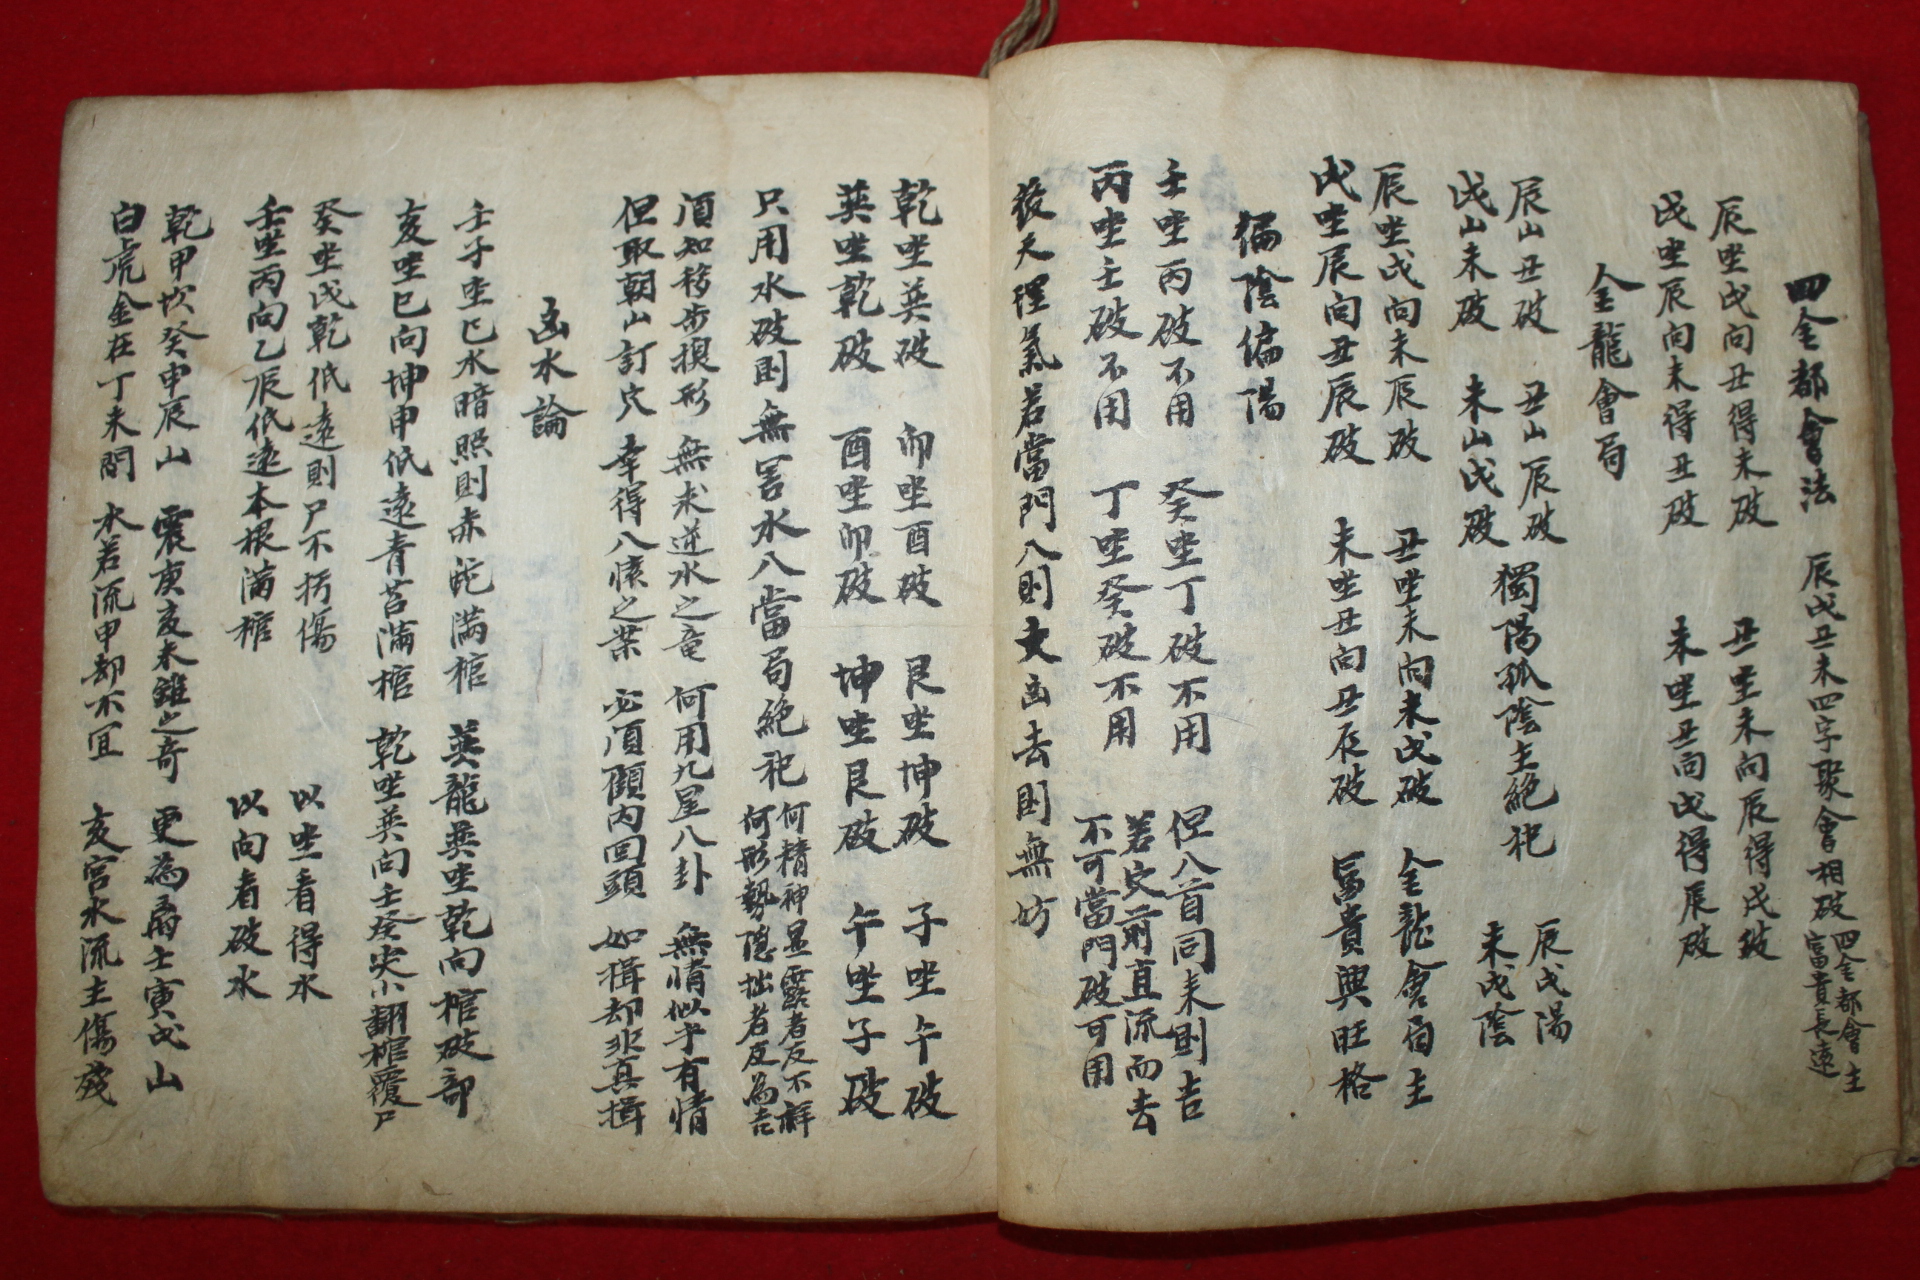 四金都會法 辰戌丑未四字聚會相破 四金都會主富貴長遠
辰坐戌向丑得未破 丑坐未向辰得戌破
戌坐辰向未得丑破 未坐丑向戌得辰破
金龍會局
辰山丑破 丑山辰破 獨陽孤陰主絶祀 辰戌陽
戌山未破 未山戌破 未戌陰
辰坐戌向未辰破 丑坐未向未戌破 金龍會局主
戌坐辰向丑辰破 未坐丑向丑辰破 富貴興旺格
偏陰偏陽
壬坐丙破不用 癸坐丁破不用 但八首同来則吉
丙坐壬破不用 丁坐癸破不用 若穴前直流而去
不可當門破可用
後天理氣若當門八則大凶去則無妨
乾坐巽破 卯坐酉破 艮坐坤破 子坐午破
巽坐乾破 酉坐卯破 坤坐艮破 午坐子破
只用水破則無害水八當局絶祀 何精神显露者反不祥
何形勢隱拙者反為吉
須知移步換形 無求逆水之竜 何用九星八卦 無情似乎有情
但取朝山訂穴 幸得八懷之案 必須顧内回頭 如揖却非真揖
凶水論
壬子坐巳水暗照則赤蛇滿棺 巽龍巽坐乾向棺破部
亥坐巳向坤申低遠青苔滿棺 乾坐巽向壬癸尖小翻棺覆尸
癸坐戌乾低遠則尸不朽傷 以坐看得水
壬坐丙向乙辰低遠木根滿棺 以向看破水
乾甲坎癸申辰山 震庚亥未雖之奇 更為离壬寅戌山
白虎金在丁未間 水若流申却不宜 亥宮水流主傷殘